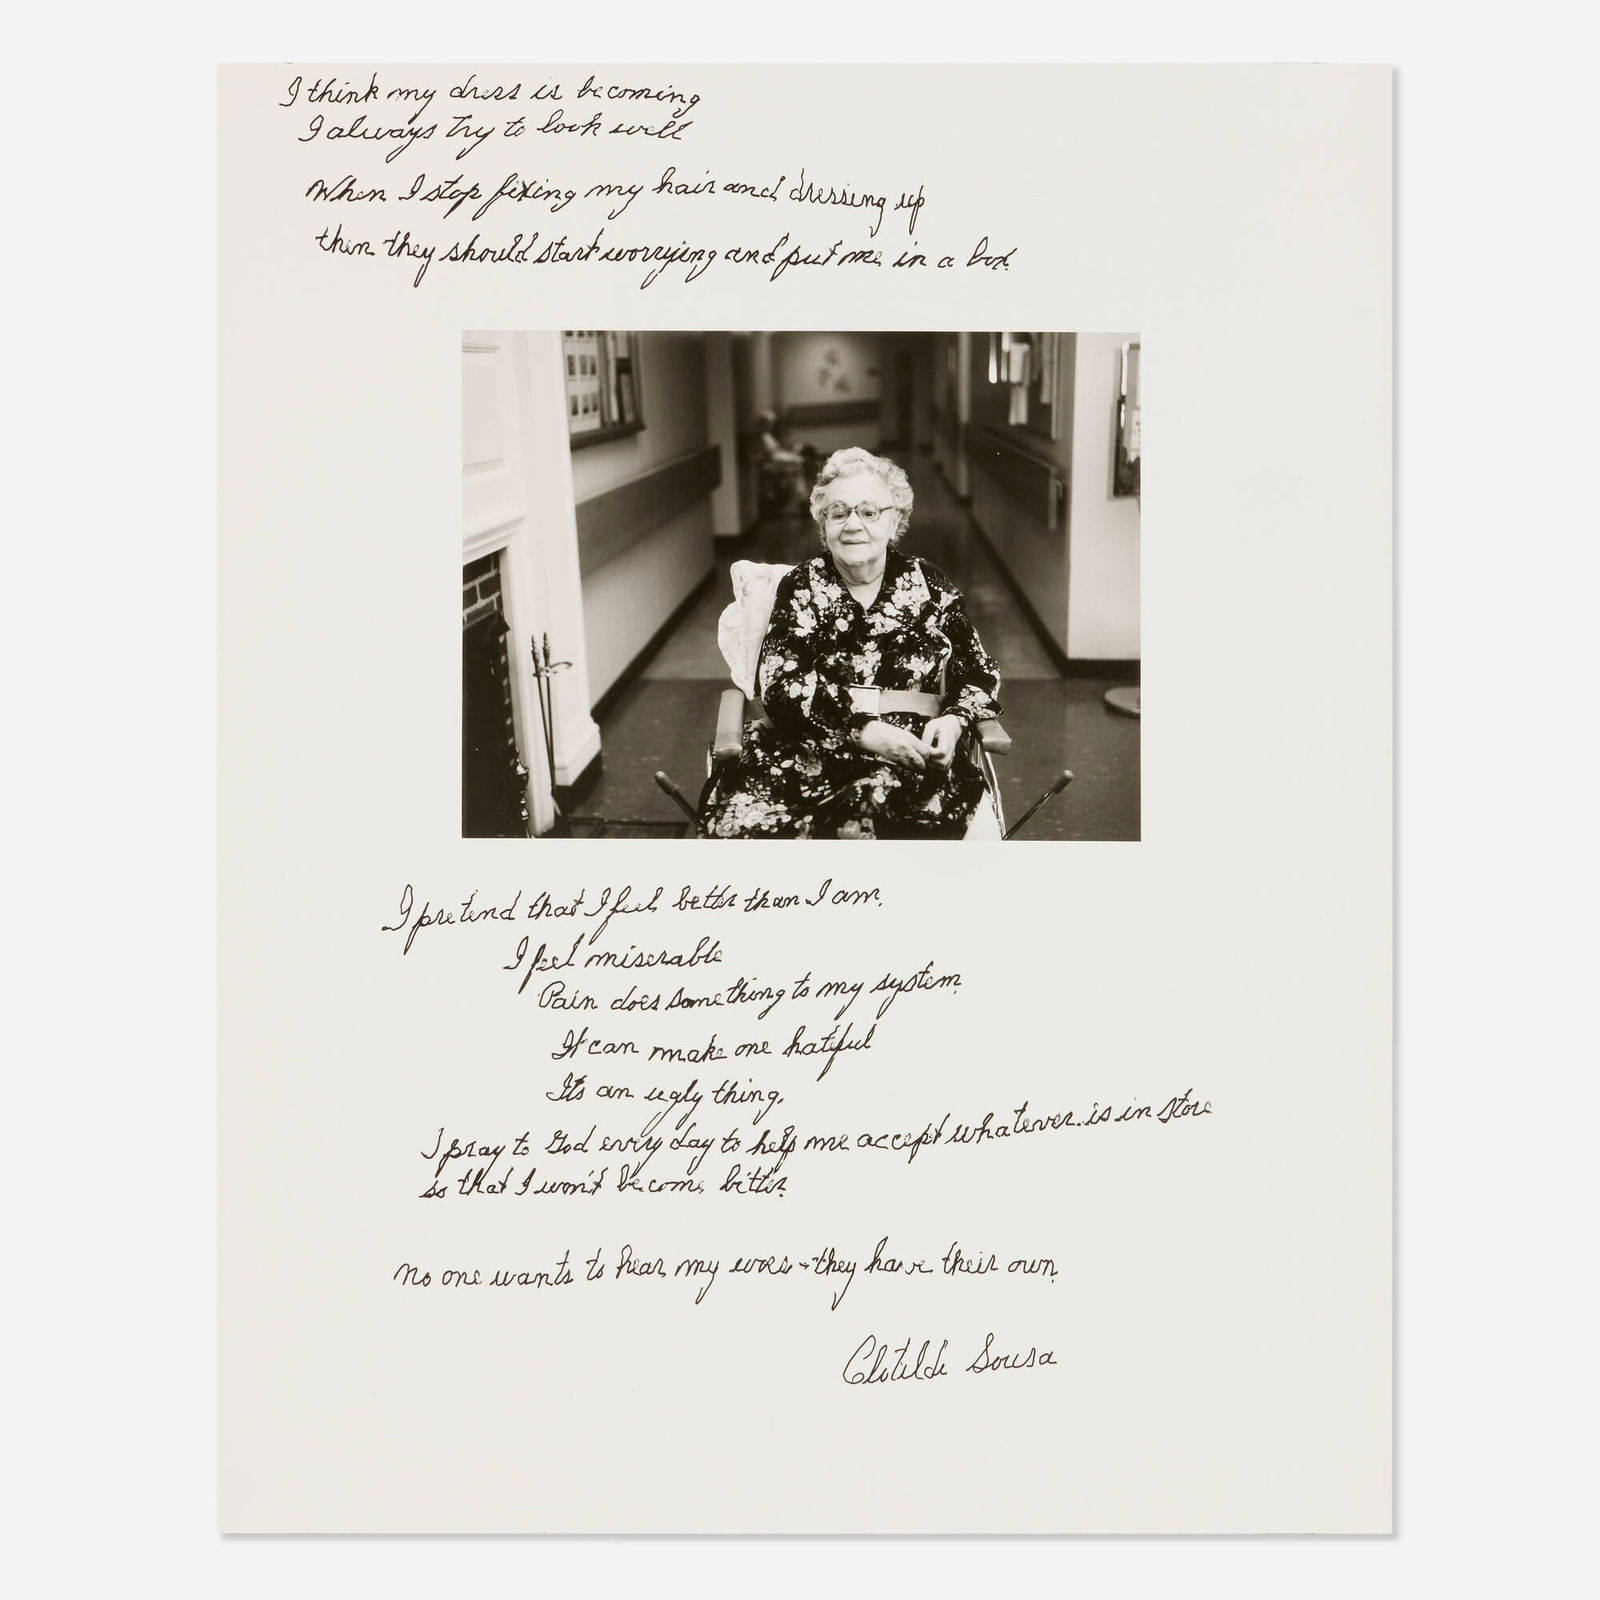 I think my dress is becoming
I always try to look well
When I stop fixing my hair and dressing up
then they should start worrying and put me in a box.
I pretend that I feel better than I am.
I feel miserable
Pain does something to my system.
It can make one hateful
Its an ugly thing.
I pray to God every day to help me accept whatever is in store
so that I won't become bitter.
No one wants to hear my woes - they have their own.
Clotilde Sousa